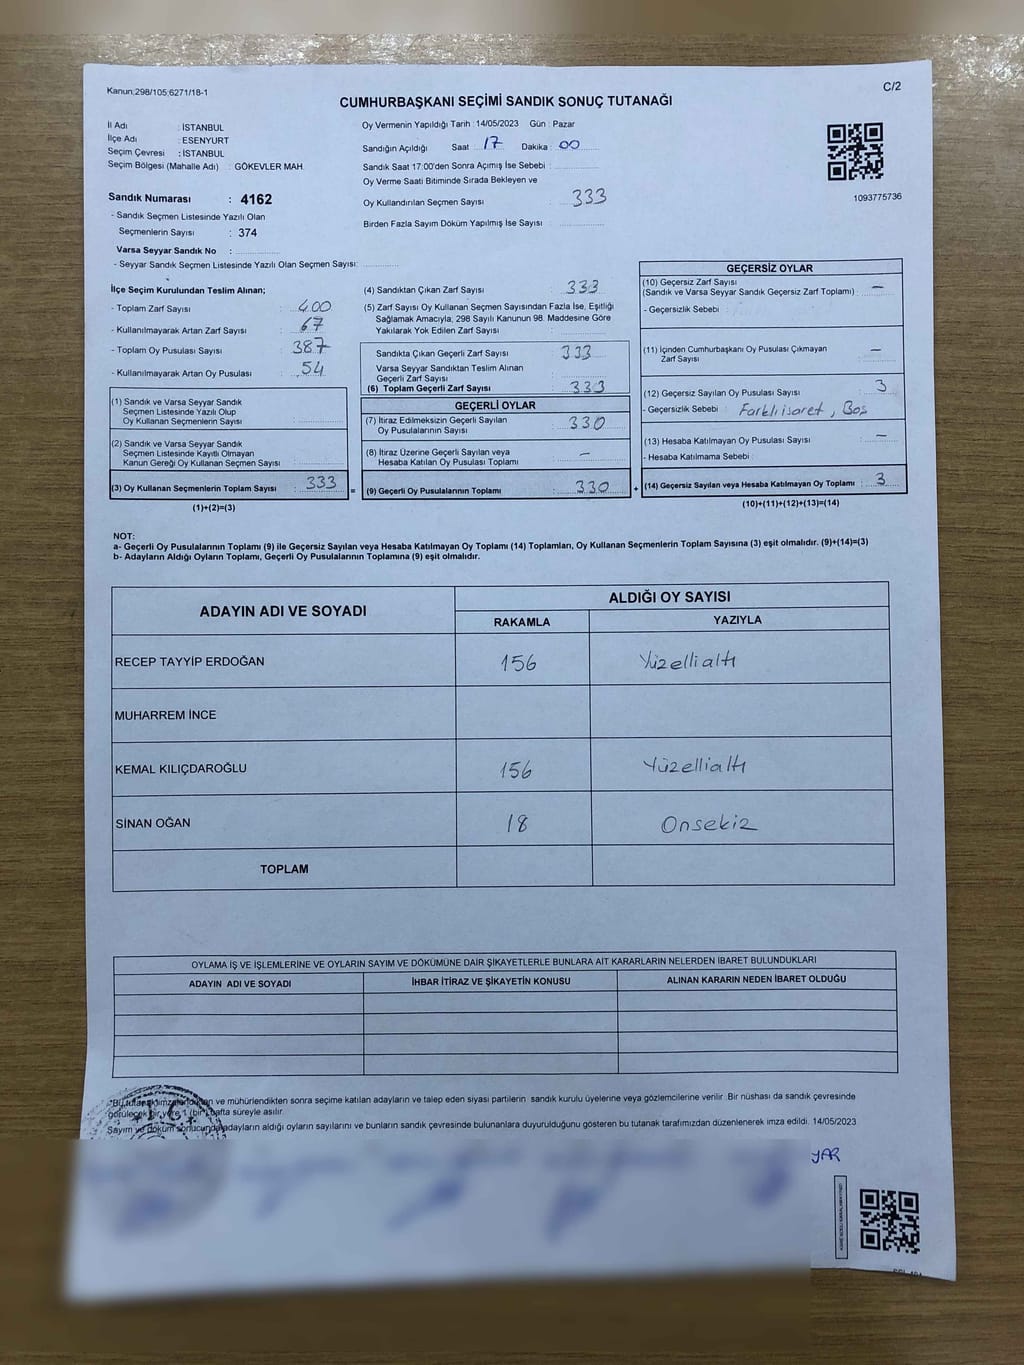 Kanun;298/105;6271/18-1
C/2
CUMHURBAŞKANI SEÇİMİ SANDIK SONUÇ TUTANAĞI
İl Adı : İSTANBUL
İlçe Adı : ESENYURT
Seçim Çevresi : İSTANBUL
Seçim Bölgesi (Mahalle Adı) : GÖKEVLER MAH.
Sandık Numarası : 4162
- Sandık Seçmen Listesinde Yazılı Olan
Seçmenlerin Sayısı : 374
Varsa Seyyar Sandık No :
- Seyyar Sandık Seçmen Listesinde Yazılı Olan Seçmen Sayısı:
Oy Vermenin Yapıldığı Tarih : 14/05/2023 Gün : Pazar
Sandığın Açıldığı Saat : 17 Dakika : 00
Sandık Saat 17:00'den Sonra Açımış İse Sebebi :
Oy Verme Saati Bitiminde Sırada Bekleyen ve
Oy Kullandırılan Seçmen Sayısı : 333
Birden Fazla Sayım Döküm Yapılmış İse Sayısı :
1093775736
İlçe Seçim Kurulundan Teslim Alınan;
- Toplam Zarf Sayısı : 400
- Kullanılmayarak Artan Zarf Sayısı : 67
- Toplam Oy Pusulası Sayısı : 387
- Kullanılmayarak Artan Oy Pusulası : 54
(1) Sandık ve Varsa Seyyar Sandık
Seçmen Listesinde Yazılı Olup
Oy Kullanan Seçmenlerin Sayısı :
(2) Sandık ve Varsa Seyyar Sandık
Seçmen Listesinde Kayıtlı Olmayan
Kanun Gereği Oy Kullanan Seçmen Sayısı :
(3) Oy Kullanan Seçmenlerin Toplam Sayısı : 333
(1)+(2)=(3)
=
(4) Sandıktan Çıkan Zarf Sayısı : 333
(5) Zarf Sayısı Oy Kullanan Seçmen Sayısından Fazla İse, Eşitliği
Sağlamak Amacıyla, 298 Sayılı Kanunun 98. Maddesine Göre
Yakılarak Yok Edilen Zarf Sayısı :
Sandıkta Çıkan Geçerli Zarf Sayısı : 333
Varsa Seyyar Sandıktan Teslim Alınan
Geçerli Zarf Sayısı :
(6) Toplam Geçerli Zarf Sayısı : 333
GEÇERLİ OYLAR
(7) İtiraz Edilmeksizin Geçerli Sayılan
Oy Pusulalarının Sayısı : 330
(8) İtiraz Üzerine Geçerli Sayılan veya
Hesaba Katılan Oy Pusulası Toplamı : –
(9) Geçerli Oy Pusulalarının Toplamı : 330
+
GEÇERSİZ OYLAR
(10) Geçersiz Zarf Sayısı
(Sandık ve Varsa Seyyar Sandık Geçersiz Zarf Toplamı) : –
- Geçersizlik Sebebi :
(11) İçinden Cumhurbaşkanı Oy Pusulası Çıkmayan
Zarf Sayısı : –
(12) Geçersiz Sayılan Oy Pusulası Sayısı : 3
- Geçersizlik Sebebi : Farklı işaret, Boş
(13) Hesaba Katılmayan Oy Pusulası Sayısı : –
- Hesaba Katılmama Sebebi :
(14) Geçersiz Sayılan veya Hesaba Katılmayan Oy Toplamı : 3
(10)+(11)+(12)+(13)=(14)
NOT:
a- Geçerli Oy Pusulalarının Toplamı (9) ile Geçersiz Sayılan veya Hesaba Katılmayan Oy Toplamı (14) Toplamları, Oy Kullanan Seçmenlerin Toplam Sayısına (3) eşit olmalıdır. (9)+(14)=(3)
b- Adayların Aldığı Oyların Toplamı, Geçerli Oy Pusulalarının Toplamına (9) eşit olmalıdır.
ADAYIN ADI VE SOYADI ALDIĞI OY SAYISI
RAKAMLA YAZIYLA
RECEP TAYYİP ERDOĞAN 156 Yüzellialtı
MUHARREM İNCE
KEMAL KILIÇDAROĞLU 156 Yüzellialtı
SİNAN OĞAN 18 Onsekiz
TOPLAM
OYLAMA İŞ VE İŞLEMLERİNE VE OYLARIN SAYIM VE DÖKÜMÜNE DAİR ŞİKAYETLERLE BUNLARA AİT KARARLARIN NELERDEN İBARET BULUNDUKLARI
ADAYIN ADI VE SOYADI İHBAR İTİRAZ VE ŞİKAYETİN KONUSU ALINAN KARARIN NEDEN İBARET OLDUĞU
ve mühürlendikten sonra seçime katılan adayların ve talep eden siyasi partilerin sandık kurulu üyelerine veya gözlemcilerine verilir. Bir nüshası da sandık çevresinde
görülecek bir yere 1 (bir) hafta süreyle asılır.
Sayım ve döküm sonucunda adayların aldığı oyların sayılarını ve bunların sandık çevresinde bulunanlara duyurulduğunu gösteren bu tutanak tarafımızdan düzenlenerek imza edildi. 14/05/2023
YAR